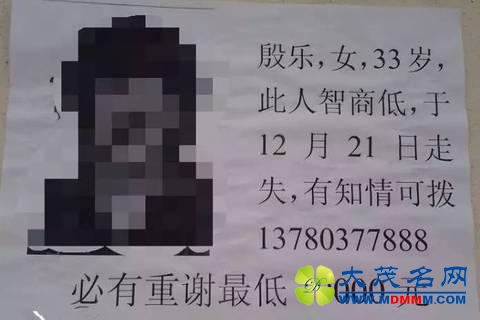 殷乐，女，33岁，
此人智商低，于
12月21日走
失，有知情可拨
13780377888
必有重谢最低 000元
大茂名网
www.MDMMM.com